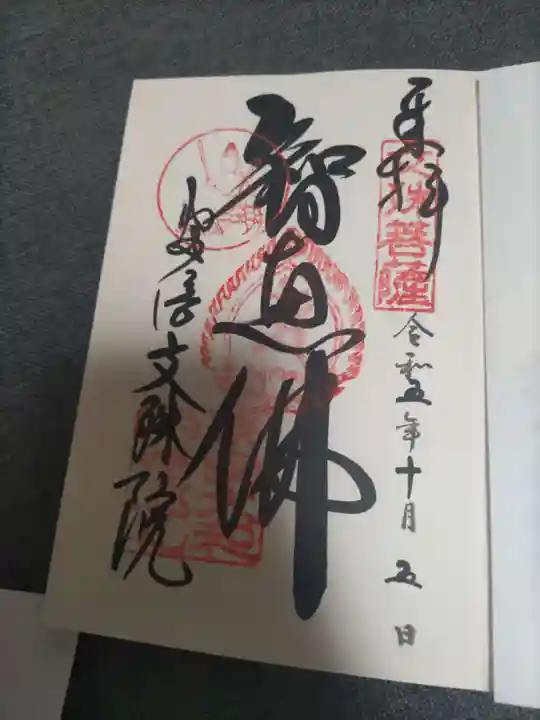 来拝
文殊菩薩
令和五年十月五日
智恵佛
安倍文殊院